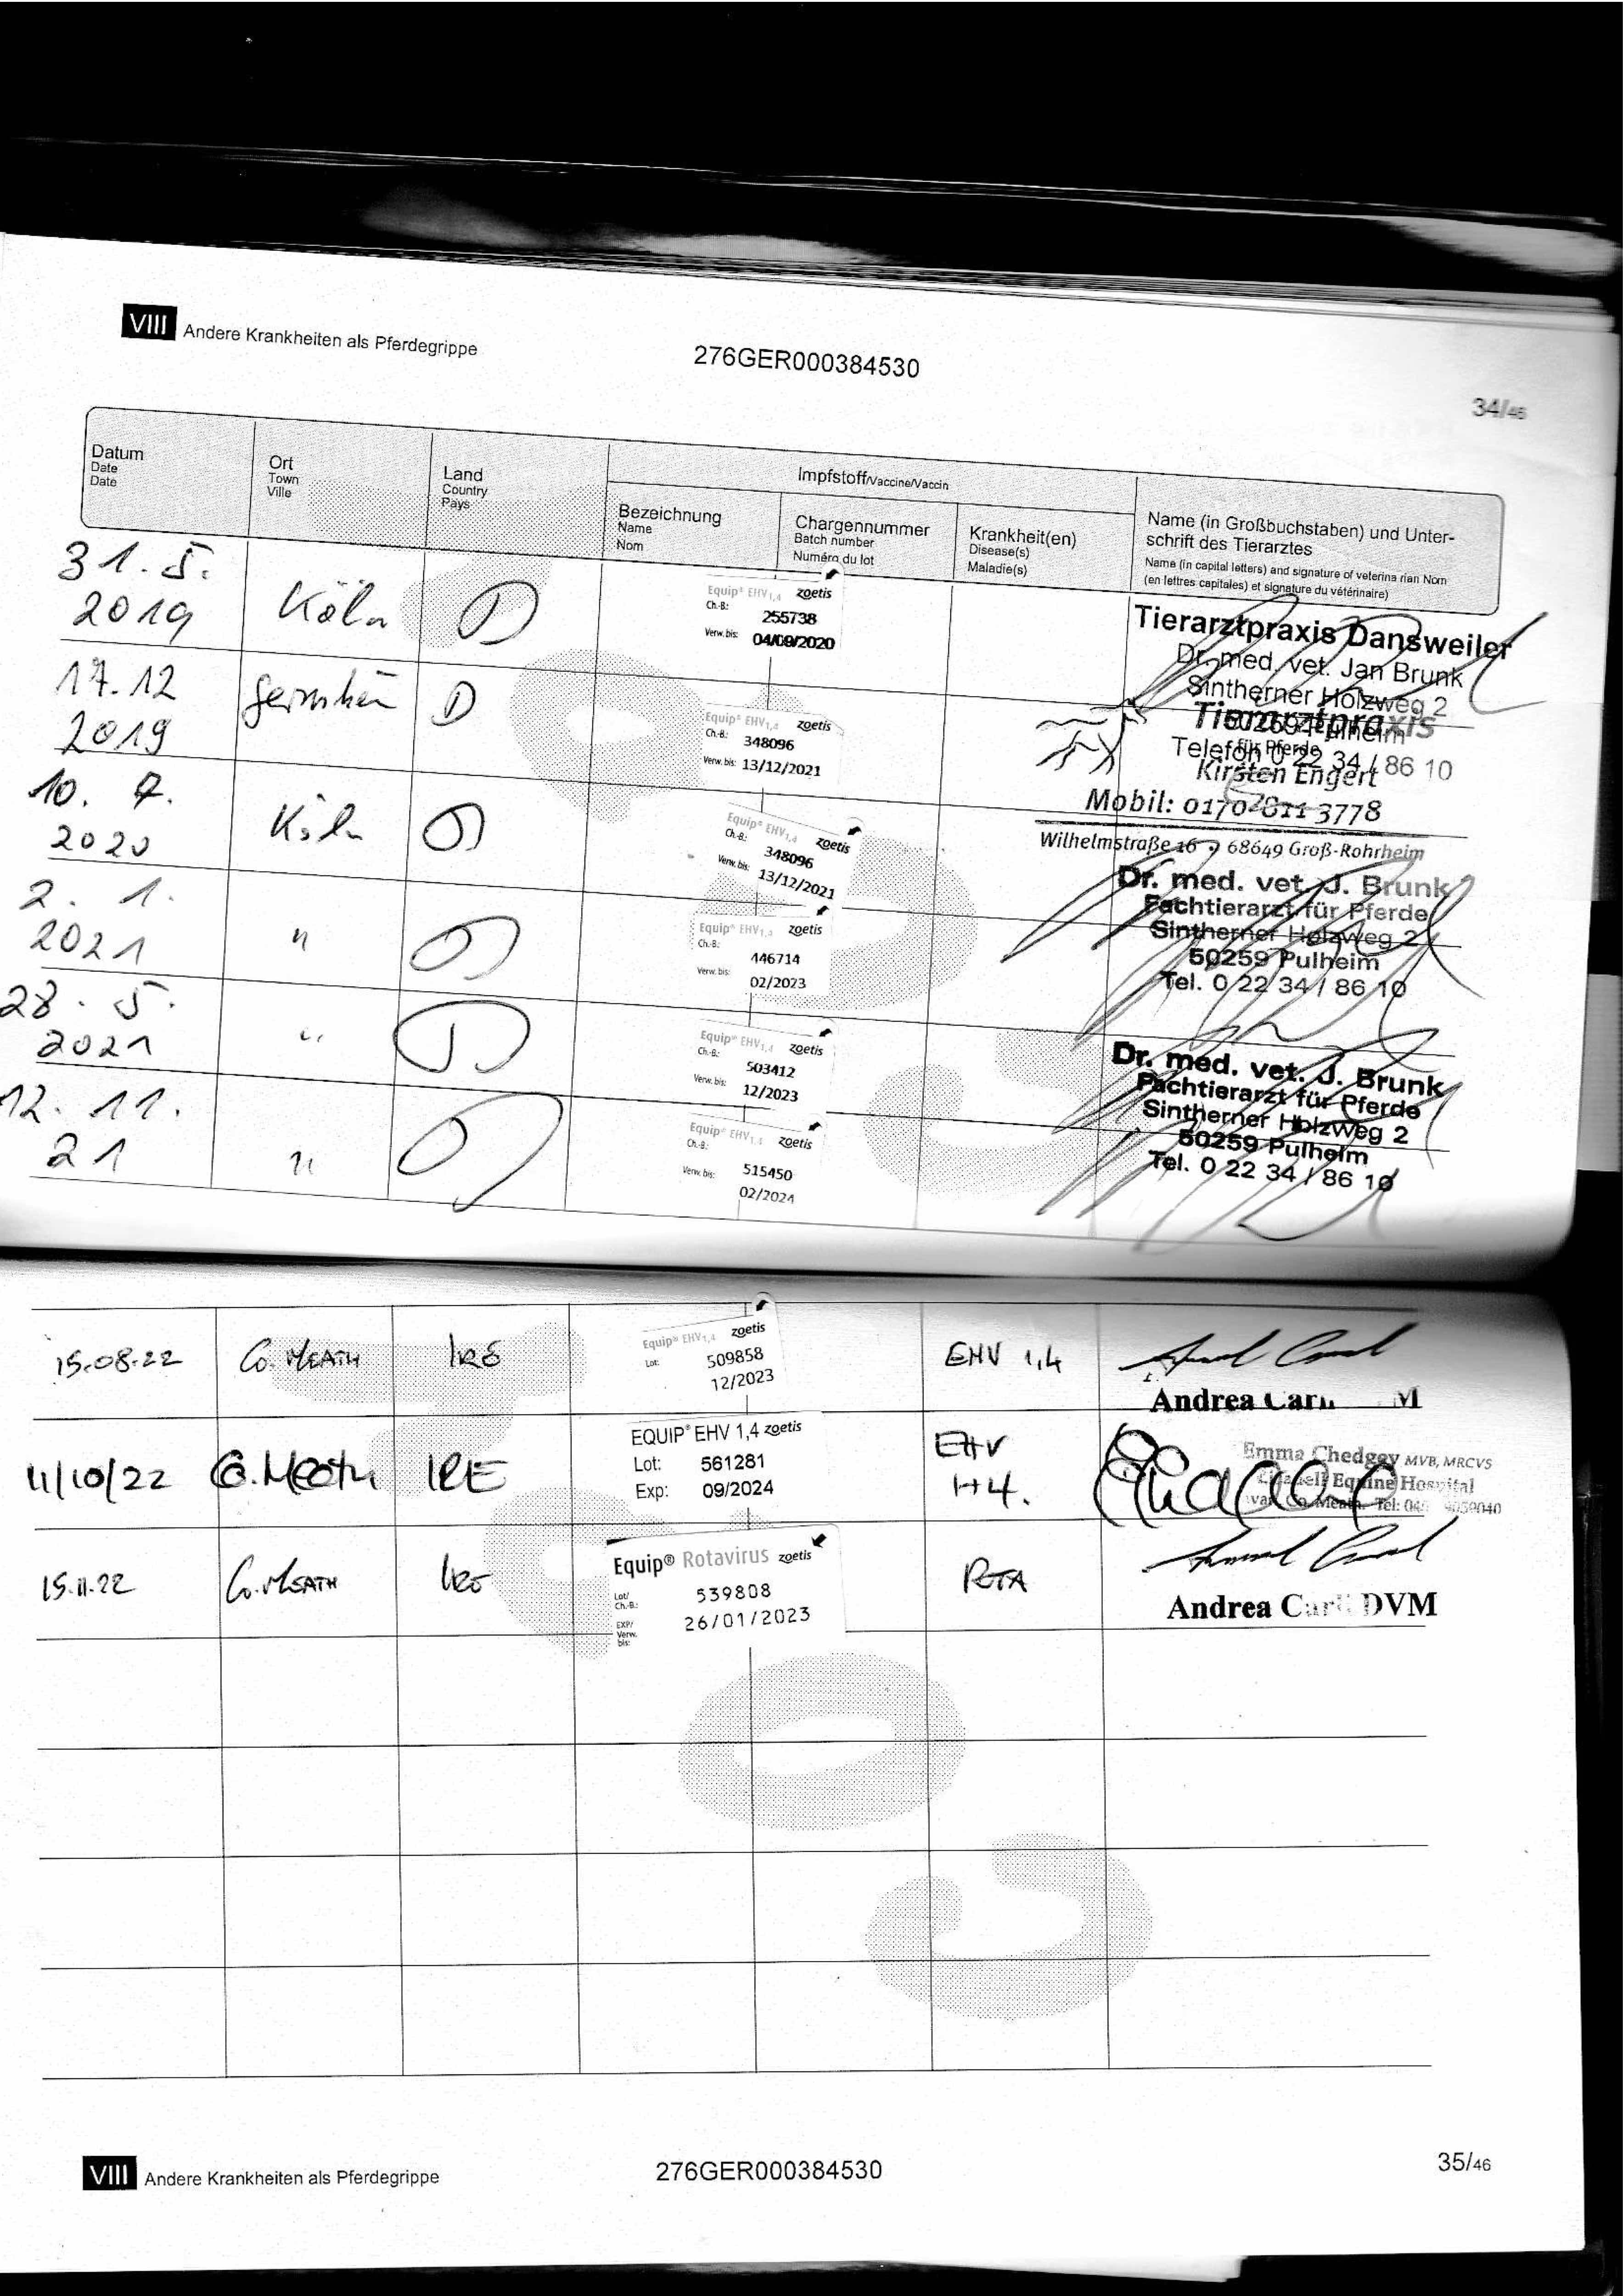 VIII Andere Krankheiten als Pferdegrippe
276GER000384530
34/46
Datum
Date
Date
Ort
Town
Ville
Land
Country
Pays
Impfstoff/Vaccine/Vaccin
Bezeichnung
Name
Nom
Chargennummer
Batch number
Numéro du lot
Krankheit(en)
Disease(s)
Maladie(s)
Name (in Großbuchstaben) und Unter-
schrift des Tierarztes
Name (in capital letters) and signature of veterina rian Nom
(en lettres capitales) et signature du vétérinaire)
31. 5.
2019
Köln
D
Equip® EHV1,4 zoetis
Ch.-B.:
255738
Verw. bis: 04/09/2020
Tierarztpraxis Dansweiler
Dr. med. vet. Jan Brunk
Sintherner Holzweg 2
50259 Pulheim
Telefon 0 22 34 / 86 10
17.12
2019
D
Equip® EHV1,4 zoetis
Ch.-B.: 348096
Verw. bis: 13/12/2021
Tierarztpraxis
für Pferde
Kirsten Engert
Mobil: 0170-811 3778
Wilhelmstraße 16 • 68649 Groß-Rohrheim
10. 7.
2020
Köln
D
Equip® EHV1,4 zoetis
Ch.-B.: 348096
Verw. bis: 13/12/2021
Dr. med. vet. J. Brunk
Fachtierarzt für Pferde
Sintherner Holzweg 2
50259 Pulheim
Tel. 0 22 34 / 86 10
2. 1.
2021
"
D
Equip® EHV1,4 zoetis
Ch.-B.:
446714
Verw. bis:
02/2023
28. 5.
2021
"
D
Equip® EHV1,4 zoetis
Ch.-B.:
503412
Verw. bis:
12/2023
Dr. med. vet. J. Brunk
Fachtierarzt für Pferde
Sintherner Holzweg 2
50259 Pulheim
Tel. 0 22 34 / 86 10
12. 11.
21
"
D
Equip® EHV1,4 zoetis
Ch.-B.:
515450
Verw. bis:
02/2024
15.08.22
Co. MEATH
IRE
Equip® EHV1,4 zoetis
Lot: 509858
12/2023
EHV 1,4
Andrea
11/10/22
Co. Meath
IRE
EQUIP® EHV 1,4 zoetis
Lot: 561281
Exp: 09/2024
EHV
1+4.
Emma Chedgey MVB, MRCVS
Equine Hospital
Co. Meath. Tel: 9059040
15.11.22
Co. MEATH
IRE
Equip® Rotavirus zoetis
Lot/
Ch.-B.: 539808
EXP/
Verw.
bis: 26/01/2023
ROTA
Andrea DVM
VIII Andere Krankheiten als Pferdegrippe
276GER000384530
35/46